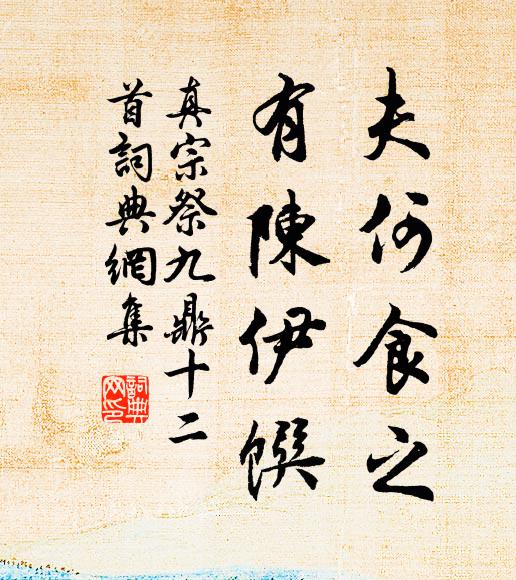 夫何食之
有陳伊饌
真宗祭九鼎十二
首詞典網集
詞典
网印